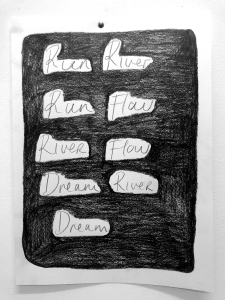 Run River
Run Flow
River Flow
Dream River
Dream